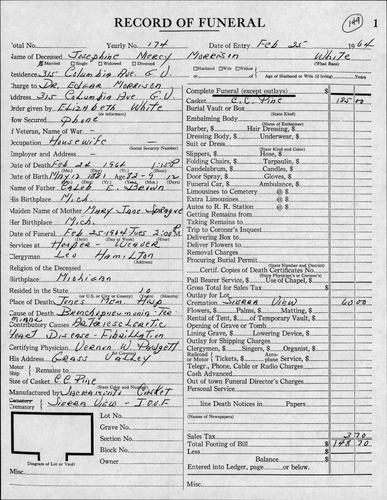 RECORD OF FUNERAL 1
149
Total No. Yearly No. 174 Date of Entry Feb 25 1964
Name of Deceased Josephine Mercy Morrison White
(What Race)
Married Single Widowed Divorced Husband Wife Widow of Age of Husband or Wife (if living) Years
Residence 315 Columbia Ave. G.V.
Charge to Dr Edgar Morrison
Address 315 Columbia Ave. G.V.
Order given by Elizabeth White
(or informant)
How Secured Phone
If Veteran, Name of War -
Occupation Housewife
(Social Security Number)
Employer and Address -
Date of Death Feb 24 1964 1:15 P
Date of Birth May 12 1881 Age 82-9-12
Name of Father Caleb E. Brown
His Birthplace Mich.
Maiden Name of Mother Mary Jane Sprague
Her Birthplace Mich.
Date of Funeral Feb 25-1964 Tues 2:00 P
Services at Hooper Weaver
Clergyman Leo Hamilton
Religion of the Deceased
Birthplace Michigan
Resided in the State 10
Place of Death Jones Mem Hosp
Cause of Death Bronchopneumonia-Terminal
Contributory Causes Arteriosclerotic
Heart Disease - Fibrillation
Certifying Physician Vernon W Padgett
His Address Grass Valley
Motor
Ship Remains to
Size of Casket C.C. Pine
Manufactured by Sacramento Casket
Cemetery
Crematory Sierra View - I.O.O.F
Lot No.
Grave No.
Section No.
Block No.
Owner
Diagram of Lot or Vault
Misc.
Complete Funeral (except outlays) $
Casket C.C. Pine 135 00
Burial Vault or Box
(State Kind)
Embalming Body
(Name of Embalmer)
Barber, $ Hair Dressing, $
Dressing Body, $ Underwear, $
Suit or Dress
(State Kind and Color)
Slippers, $ Hose, $
Folding Chairs, $ Tarpaulin, $
Candelabrum, $ Candles, $
Door Spray, $ Gloves, $
Funeral Car, $ Ambulance, $
Limousines to Cemetery @ $
Extra Limousines @ $
Autos to R. R. Station @ $
Getting Remains from
Taking Remains to
Trip to Coroner's Inquest
Delivering Box to
Deliver Flowers to
Removal Charges
Procuring Burial Permit
(State Number and District)
Certif. Copies of Death Certificates No.
(State Physician's or Coroner's)
Pall Bearer Service, $ Use of Chapel, $
Gross Total for Sales Tax $
Outlay for Lot
Cremation Sierra View 60.00
Flowers, $ Palms, $ Matting, $
Rental of Tent, $ of Temporary Vault, $
Opening of Grave or Tomb
Lining Grave, $ Lowering Device, $
Outlay for Shipping Charges
Clergymen, $ Singers, $ Organist, $
Railroad or Motor Tickets, $ Aeroplane Service, $
Telegr., Phone, Cable or Radio Charges
Cash Advanced
Out of town Funeral Director's Charges
Personal Service
line Death Notices in Papers
(Names of Newspapers)
Sales Tax 3.70
Total Footing of Bill $
Less
Balance $
Entered into Ledger, page or below.
Misc.